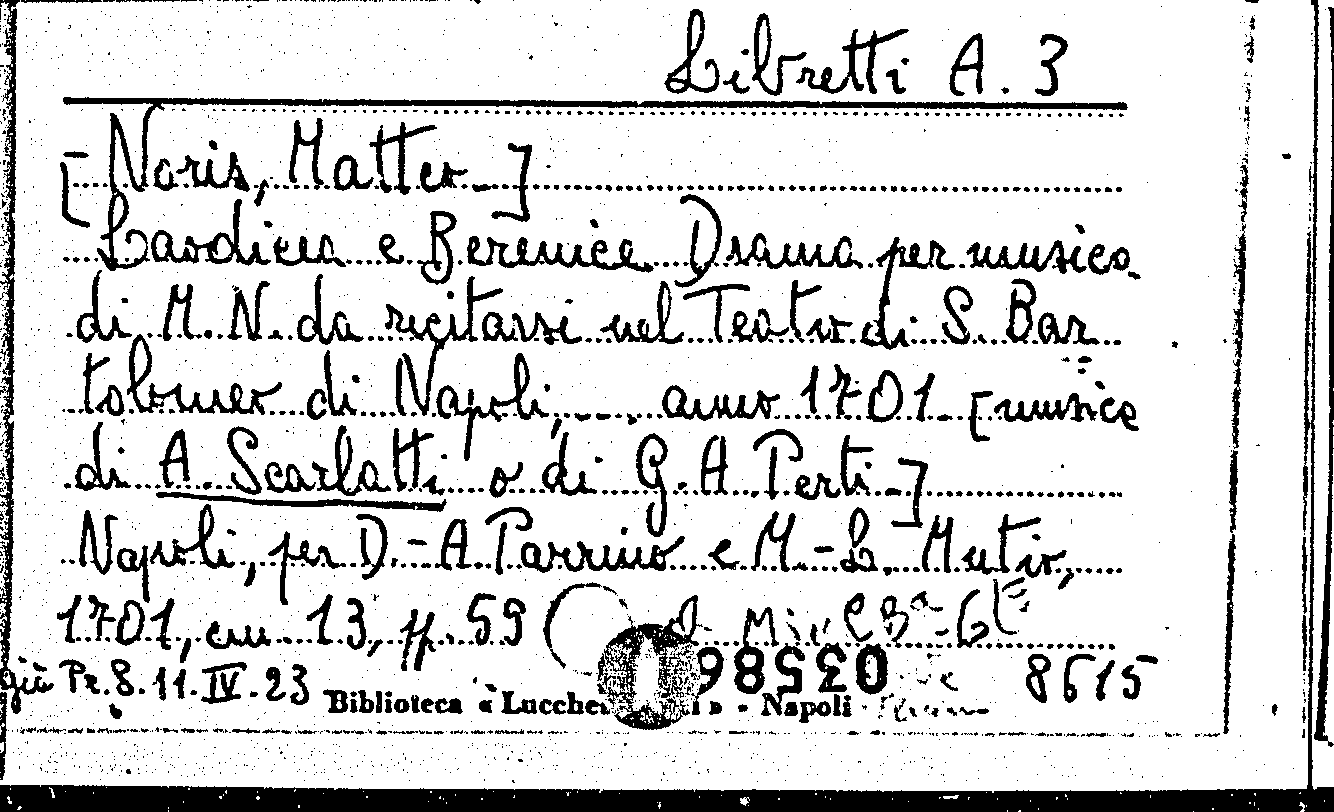 Libretti A. 3
[- Noris, Matteo -]
Laodicea e Berenice Drama per musica
di M. N. da recitarsi nel Teatro di S. Bar
tolomeo di Napoli, ... anno 1701 - [musica
di A. Scarlatti o di G. A. Perti -]
Napoli, per D.-A. Parrino e M.-L. Mutio,
1701, cm. 13, pp. 59
già Pr. S. 11. IV. 23 Biblioteca « Lucchesi » - Napoli 03586 8615